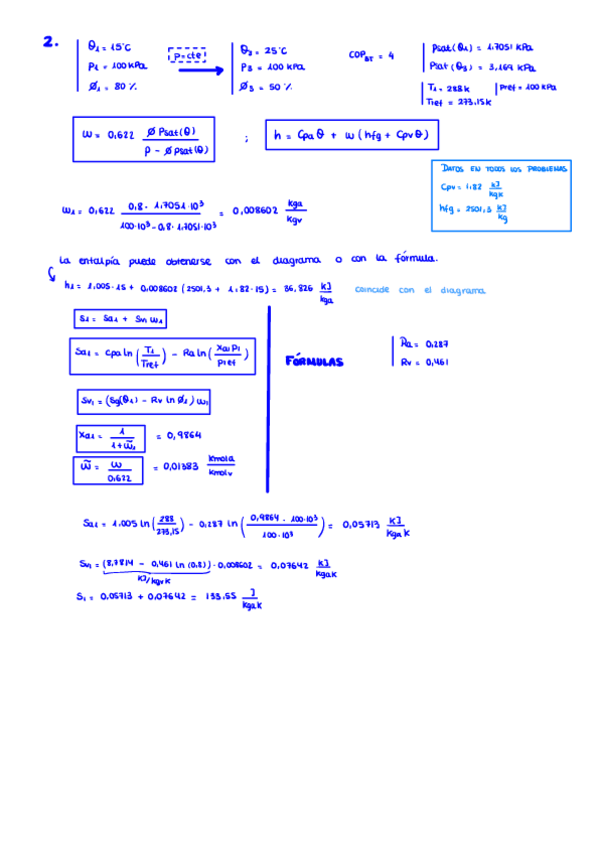 2. θ1 = 15°C P=cte θ3 = 25°C COP_BT = 4 Psat(θ1) = 1,7051 kPa
P1 = 100 kPa P3 = 100 kPa Psat(θ3) = 3,169 kPa
Ø1 = 80 % Ø3 = 50 % T1 = 288k Pref = 100 kPa
Tref = 273,15k
ω = 0,622 Ø Psat(θ) / P - Ø Psat(θ) ; h = Cpa θ + ω (hfg + Cpv θ)
DATOS EN TODOS LOS PROBLEMAS
Cpv = 1,82 kJ/kgK
hfg = 2501,3 kJ/kg
ω1 = 0,622 0,8 · 1,7051·10³ / 100·10³ - 0,8 · 1,7051·10³ = 0,008602 kga/kgv
La entalpía puede obtenerse con el diagrama o con la fórmula.
h1 = 1,005·15 + 0,008602 (2501,3 + 1,82·15) = 36,826 kJ/kga coincide con el diagrama
S1 = Sa1 + Sv1 ω1
Sa1 = Cpa ln (T1/Tref) - Ra ln (Xa1 P1/Pref) FÓRMULAS Ra = 0,287
Rv = 0,461
Sv1 = (Sg(θ1) - Rv ln Ø1) ω1
Xa1 = 1 / 1+ω̃1 = 0,9864
ω̃ = ω / 0,622 = 0,01383 kmola/kmolv
Sa1 = 1,005 ln (288/273,15) - 0,287 ln (0,9864 · 100·10³ / 100·10³) = 0,05713 kJ/kgaK
Sv1 = (8,7814 - 0,461 ln (0,8)) · 0,008602 = 0,07642 kJ/kgaK
kJ/kgvK
S1 = 0,05713 + 0,07642 = 133,55 J/kgaK